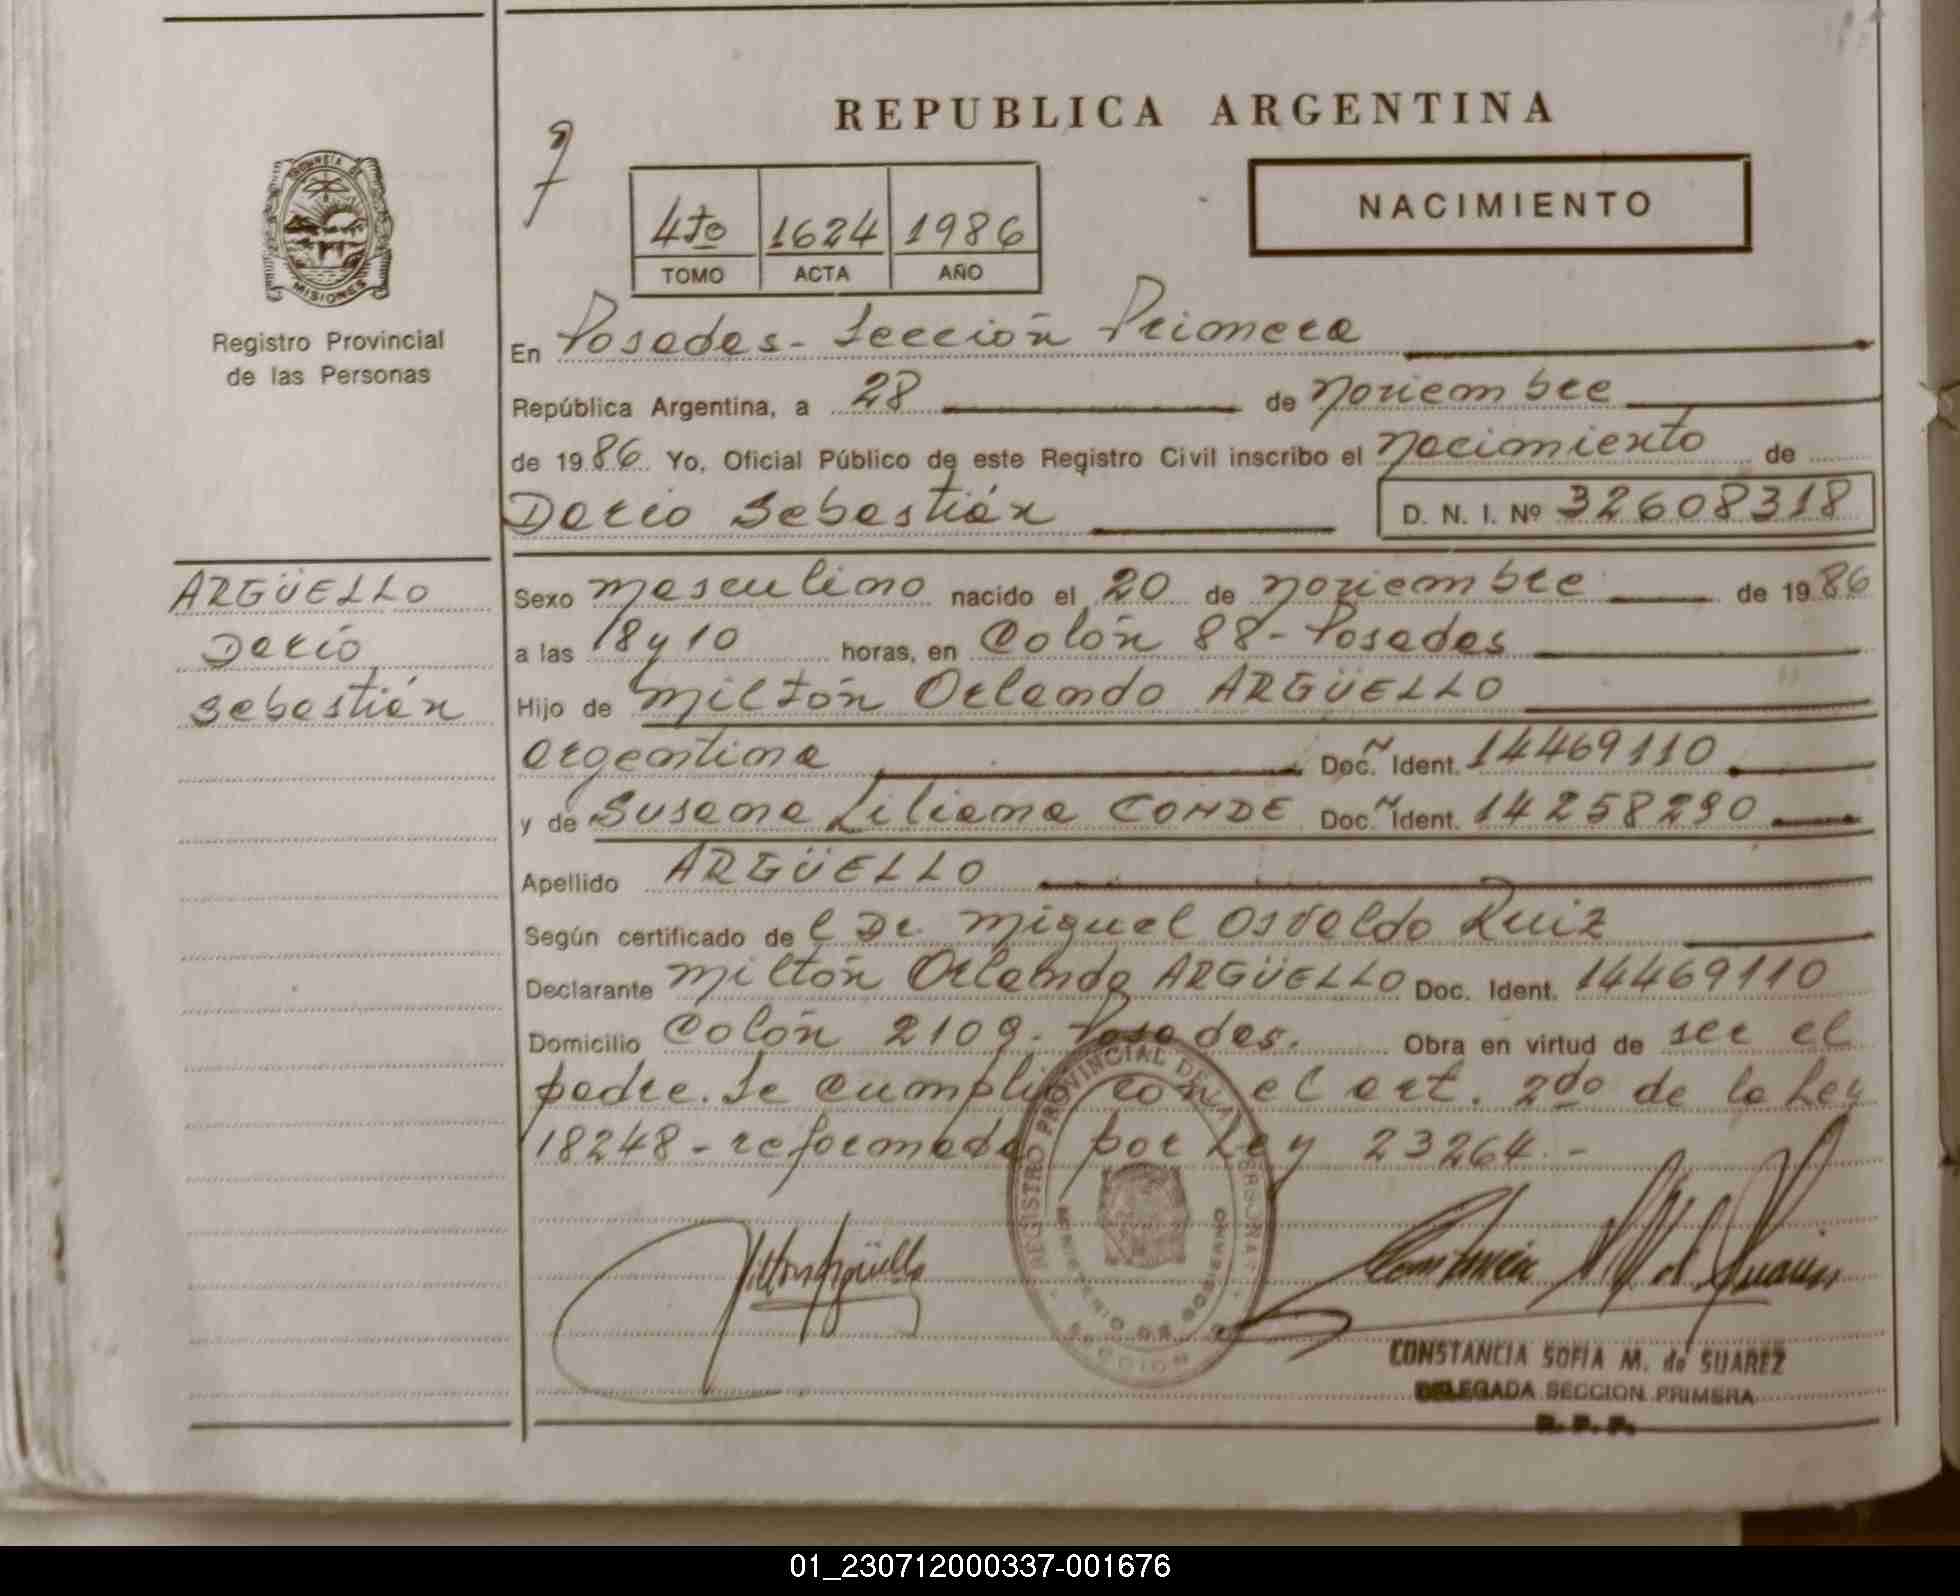 REPUBLICA ARGENTINA
NACIMIENTO
4to 1624 1986
TOMO ACTA AÑO
PROVINCIA DE MISIONES
Registro Provincial
de las Personas
En Posadas - Sección Primera
República Argentina, a 28 de noviembre
de 1986 Yo, Oficial Público de este Registro Civil inscribo el nacimiento de
Darío Sebastián D. N. I. Nº 32608318
ARGÜELLO
Darío
Sebastián
Sexo masculino nacido el 20 de noviembre de 1986
a las 18 y 10 horas, en Colón 88 - Posadas
Hijo de Miltón Orlando ARGÜELLO
argentina Doc. Ident. 14469110
y de Susana Liliana CONDE Doc. Ident. 14258290
Apellido ARGÜELLO
Según certificado del Dr. Miguel Osvaldo Ruiz
Declarante Miltón Orlando ARGÜELLO Doc. Ident. 14469110
Domicilio Colón 2109 - Posadas. Obra en virtud de ser el
padre. Se cumplió con el art. 2do de la Ley
18248 - reformada por Ley 23264.-
REGISTRO PROVINCIAL DE LAS PERSONAS
MINISTERIO DE GOBIERNO
SECCION
Milton Argüello
Constancia S M de Suarez
CONSTANCIA SOFIA M. de SUAREZ
DELEGADA SECCION PRIMERA
R. P. P.
01_230712000337-001676